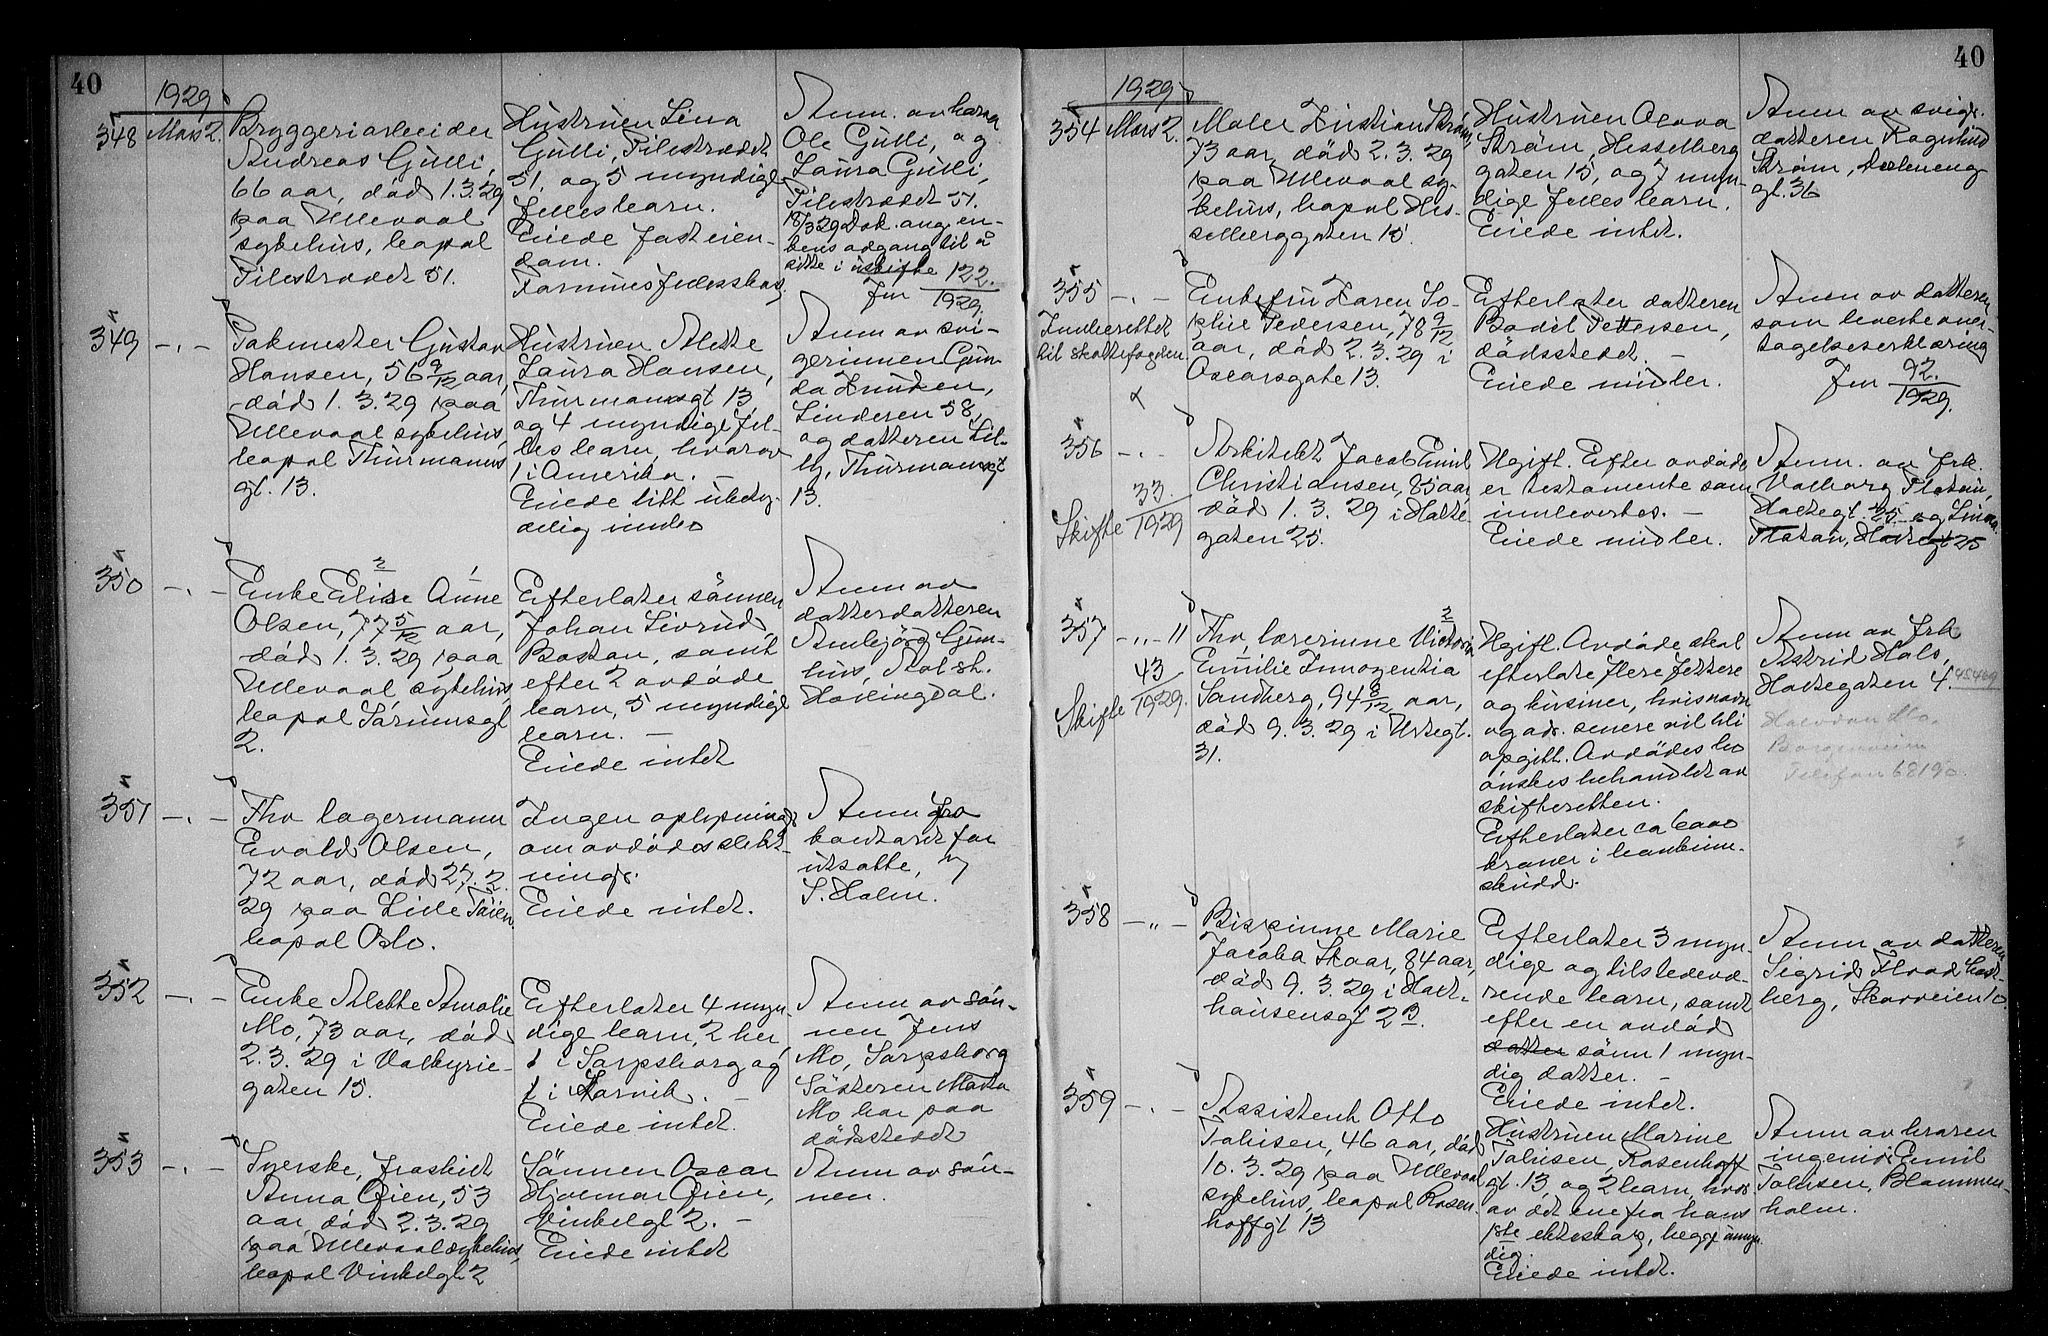 40
1929
348 Mars 2.
Bryggeriarbeider
Andreas Gulli,
66 aar, död 1.3.29
paa Ullevaal
sykehus, bopal
Pilestrædet 51.
Hustruen Lina
Gulli, Pilestrædet
51, og 5 myndige
fellesbarn.
Eiede fasteien-
dom.
Formuesfellesskap.
Anm. av barna
Ole Gulli, og
Laura Gulli,
Pilestrædet 51.
18/3 29 Dok. ang. en-
kens adgang til å
sitte i uskifte
Jnr 122/1929.
349 -"-
Pakmester Gustav
Hansen, 56 9/12 aar,
död 1.3.29 paa
Ullevaal sykehus,
bopal Thurmanns
gt. 13.
Hustruen Alette
Laura Hansen,
Thurmannsgt 13
og 4 myndige fel-
les barn, hvorav
1 i Amerika. -
Eiede litt ubety-
delig innbo
Anm av svi-
gerinnen Gun-
da Knudsen,
Linderen 58,
og datteren Lil-
ly, Thurmannsgt
13.
350 -"-
Enke Elise Anne
Olsen, 77 5/12 aar,
död 1.3.29 paa
Ullevaal sykehus,
bopal Sörumsgt
2.
Efterlater sönnen
Johan Livrud,
Boston, samt
efter 2 avdöde
barn, 5 myndige
barn. -
Eiede intet
Anm av
datterdatteren
Ambjörg Gun-
hus, Aal st.
Hallingdal.
351 -"-
Fhv lagermann
Evald Olsen,
72 aar, död 27.2.
29 paa Lille Töien
bopal Oslo.
Ingen oplysninger
om avdödes slekt-
ninger.
Eiede intet.
Anm fra
kontoret for
utsatte, v/
S. Holm.
352 -"-
Enke Alette Amalie
Mo, 73 aar, död
2.3.29 i Valkyrie-
gaten 15.
Efterlater 4 myn-
dige barn, 2 her,
1 i Sarpsborg og
1 i Narvik. -
Eiede intet.
Anm av sön-
nen Jens
Mo, Sarpsborg
Sösteren Marta
Mo bor paa
dödsstedet
353 -"-
Syerske, fraskilt
Anna Öien, 53
aar, död 2.3.29
paa Ullevaal sykehus,
bopal Vinkelgt 2
Sönnen Oscar
Hjalmar Öien,
Vinkelgt 2. -
Eiede intet
Anm av sön-
nen.
40
1929
354 Mars 2.
Maler Kristian Ström,
73 aar, död 2.3.29
paa Ullevaal sy-
kehus, bopal Hes-
selberggaten 15.
Hustruen
Ström, Hesselberg
gaten 15, og 7 myn-
dige fellesbarn.
Eiede intet.
Anm av svige-
datteren Ragnhild
Ström, Dæleneng
gt. 36
355 -"-
Innberettet
til skattefogden
Enkefru Karen So-
phie Pedersen, 78 9/12
aar, död 2.3.29 i
Oscarsgate 13.
Efterlater datteren
Bodil Pettersen,
dödsstedet. -
Eiede midler.
Anm av datteren
som leverte over-
tagelseserklæring
Jnr 92./1929.
356 -"-
Skifte 33./1929
Arkitekt Jacob Emil
Christiansen, 85 aar,
död 1.3.29 i Holte-
gaten 25.
Ugift. Efter avdöde
er testamente som
innlevertes. -
Eiede midler.
Anm. av frk.
Valborg Platou,
Holtegt. 25 og
Platou, Holtegt 25
357 -"- 11
Skifte 43/1929.
Fhv. lærerinne Victoria
Emilie Innogentia
Sandberg, 94 8/12 aar,
död 9.3.29 i Urtegt.
31.
Ugift. Avdöde skal
efterlate flere fettere
og kusiner, hvis navn
og adr. senere vil bli
opgitt. Avdödes bo
önskes behandlet av
skifteretten.
Efterlater ca 6000
kroner i bankinn-
skudd.
Anm av frk
Astrid Hals,
Holtegaten 4. 45469
Telefon 68190
358 -"-
Bispinne Marie
Jacoba Skaar, 84 aar,
död 9.3.29 i Holt-
hausensgt 2
Efterlater 3 myn-
dige og tilstedevæ-
rende barn, samt
efter en avdöd
datter sönn 1 myn-
dig datter. -
Eiede intet.
Anm av datteren
Sigrid
berg, Skovveien 10.
359 -"-
Assistent Otto
Tobisen, 46 aar, död
10.3.29 paa Ullevaal
sykehus, bopal Rosen
hoffgt 13
Hustruen Marine
Tobisen, Rosenhoff
gt. 13 og 2 barn, hvor
av det ene fra hans
1ste ekteskap, begge umyn
dig.
Eiede intet.
Anm av broren
ingeniör Emil
Tobisen, Blommen-
holm.